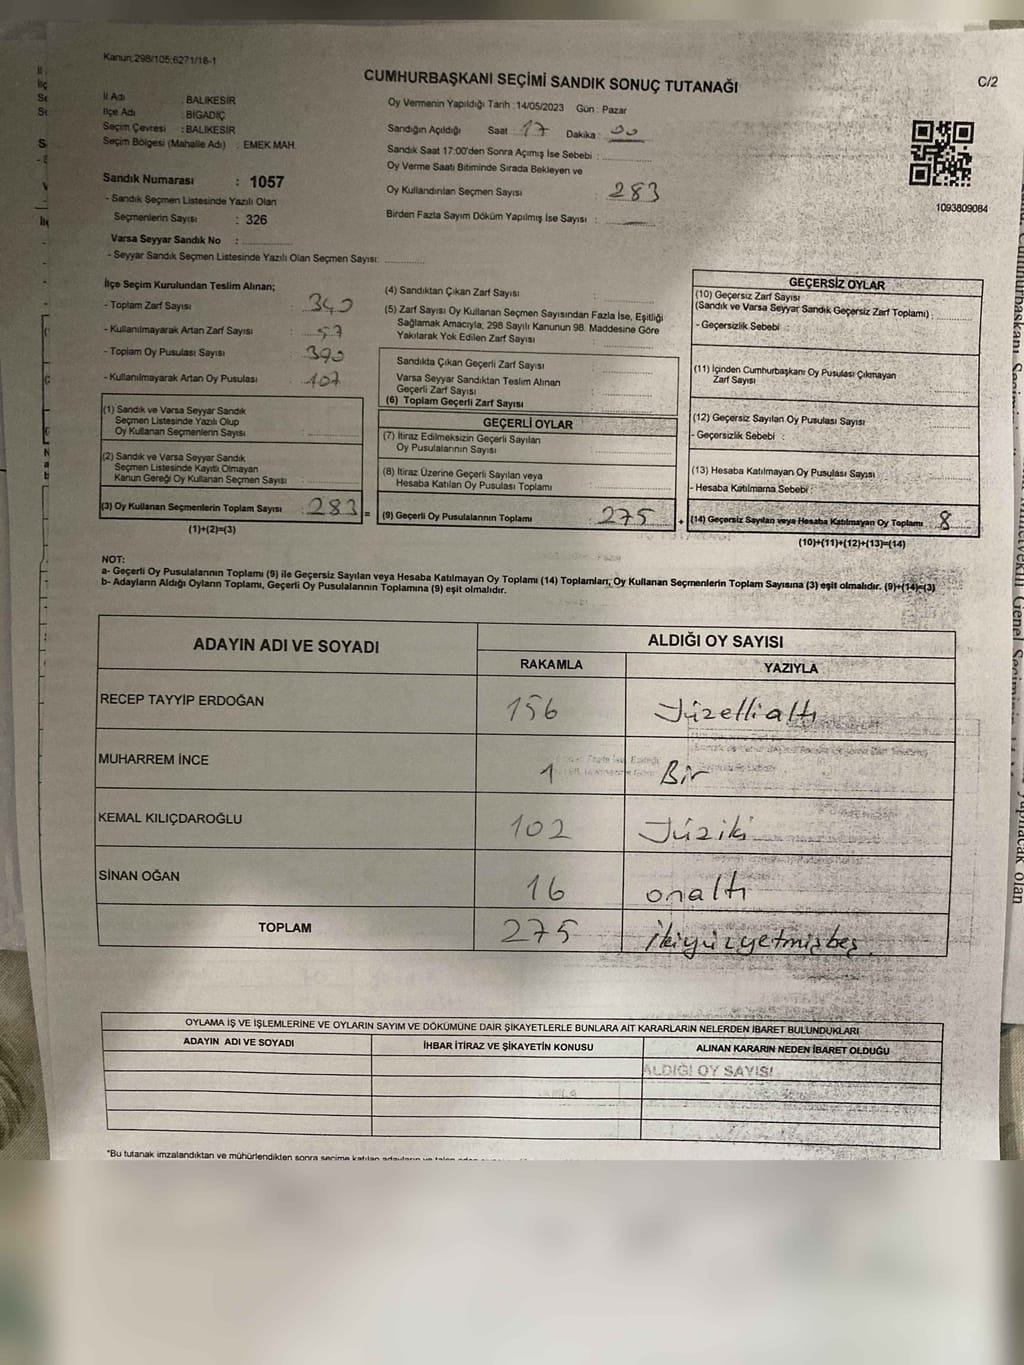 Kanun;298/105;6271/18-1
CUMHURBAŞKANI SEÇİMİ SANDIK SONUÇ TUTANAĞI
C/2
İl Adı : BALIKESİR
İlçe Adı : BİGADİÇ
Seçim Çevresi : BALIKESİR
Seçim Bölgesi (Mahalle Adı) : EMEK MAH.
Oy Vermenin Yapıldığı Tarih : 14/05/2023 Gün : Pazar
Sandığın Açıldığı Saat : 17 Dakika : 00
Sandık Saat 17:00'den Sonra Açımış İse Sebebi :
Oy Verme Saati Bitiminde Sırada Bekleyen ve
Oy Kullandırılan Seçmen Sayısı : 283
Birden Fazla Sayım Döküm Yapılmış İse Sayısı :
1093809084
Sandık Numarası : 1057
- Sandık Seçmen Listesinde Yazılı Olan
Seçmenlerin Sayısı : 326
Varsa Seyyar Sandık No :
- Seyyar Sandık Seçmen Listesinde Yazılı Olan Seçmen Sayısı:
İlçe Seçim Kurulundan Teslim Alınan;
- Toplam Zarf Sayısı : 340
- Kullanılmayarak Artan Zarf Sayısı : 57
- Toplam Oy Pusulası Sayısı : 390
- Kullanılmayarak Artan Oy Pusulası : 107
(1) Sandık ve Varsa Seyyar Sandık
Seçmen Listesinde Yazılı Olup
Oy Kullanan Seçmenlerin Sayısı :
(2) Sandık ve Varsa Seyyar Sandık
Seçmen Listesinde Kayıtlı Olmayan
Kanun Gereği Oy Kullanan Seçmen Sayısı :
(3) Oy Kullanan Seçmenlerin Toplam Sayısı : 283 =
(1)+(2)=(3)
(4) Sandıktan Çıkan Zarf Sayısı :
(5) Zarf Sayısı Oy Kullanan Seçmen Sayısından Fazla İse, Eşitliği
Sağlamak Amacıyla; 298 Sayılı Kanunun 98. Maddesine Göre
Yakılarak Yok Edilen Zarf Sayısı :
Sandıkta Çıkan Geçerli Zarf Sayısı :
Varsa Seyyar Sandıktan Teslim Alınan
Geçerli Zarf Sayısı :
(6) Toplam Geçerli Zarf Sayısı :
GEÇERLİ OYLAR
(7) İtiraz Edilmeksizin Geçerli Sayılan
Oy Pusulalarının Sayısı :
(8) İtiraz Üzerine Geçerli Sayılan veya
Hesaba Katılan Oy Pusulası Toplamı :
(9) Geçerli Oy Pusulalarının Toplamı : 275 +
GEÇERSİZ OYLAR
(10) Geçersiz Zarf Sayısı
(Sandık ve Varsa Seyyar Sandık Geçersiz Zarf Toplamı) :
- Geçersizlik Sebebi :
(11) İçinden Cumhurbaşkanı Oy Pusulası Çıkmayan
Zarf Sayısı :
(12) Geçersiz Sayılan Oy Pusulası Sayısı :
- Geçersizlik Sebebi :
(13) Hesaba Katılmayan Oy Pusulası Sayısı :
- Hesaba Katılmama Sebebi :
(14) Geçersiz Sayılan veya Hesaba Katılmayan Oy Toplamı : 8
(10)+(11)+(12)+(13)=(14)
NOT:
a- Geçerli Oy Pusulasının Toplamı (9) ile Geçersiz Sayılan veya Hesaba Katılmayan Oy Toplamı (14) Toplamları, Oy Kullanan Seçmenlerin Toplam Sayısına (3) eşit olmalıdır. (9)+(14)=(3)
b- Adayların Aldığı Oyların Toplamı, Geçerli Oy Pusulalarının Toplamına (9) eşit olmalıdır.
ADAYIN ADI VE SOYADI
ALDIĞI OY SAYISI
RAKAMLA
YAZIYLA
RECEP TAYYİP ERDOĞAN 156 Yüzelli altı
MUHARREM İNCE 1 Bir
KEMAL KILIÇDAROĞLU 102 Yüziki
SİNAN OĞAN 16 onaltı
TOPLAM 275 ikiyüzyetmişbeş
OYLAMA İŞ VE İŞLEMLERİNE VE OYLARIN SAYIM VE DÖKÜMÜNE DAİR ŞİKAYETLERLE BUNLARA AİT KARARLARIN NELERDEN İBARET BULUNDUKLARI
ADAYIN ADI VE SOYADI
İHBAR İTİRAZ VE ŞİKAYETİN KONUSU
ALINAN KARARIN NEDEN İBARET OLDUĞU
ALDIĞI OY SAYISI
*Bu tutanak imzalandıktan ve mühürlendikten sonra seçime katılan adayların